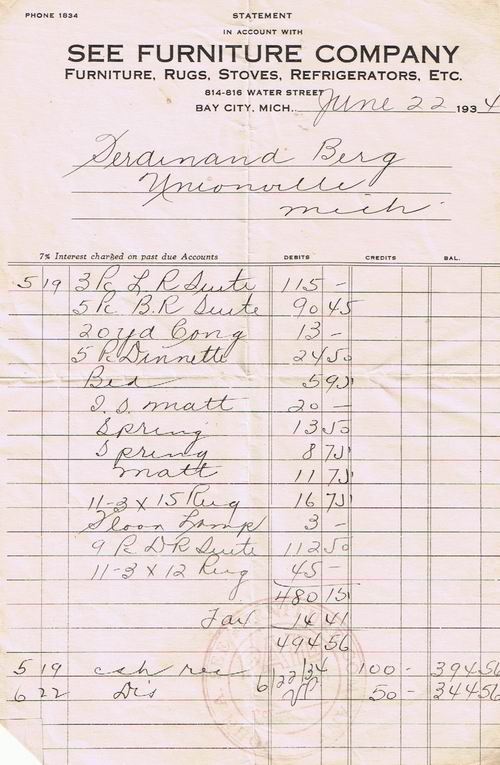 PHONE 1834
STATEMENT
IN ACCOUNT WITH
SEE FURNITURE COMPANY
FURNITURE, RUGS, STOVES, REFRIGERATORS, ETC.
814-816 WATER STREET
BAY CITY, MICH., June 22 1934
Ferdinand Berg
Unionville
Mich
7% Interest charged on past due Accounts DEBITS CREDITS BAL.
5 19 3 Pc L.R Suite 115 -
5 Pc. B.R Suite 90 45
20 yd Cong 13 -
5 Pc Dinnette 24 50
Bed 5 95
I. S. Matt 20 -
Spring 13 50
Spring 8 75
Matt 11 75
11-3 x 15 Rug 16 75
Floor Lamp 3 -
9 Pc D R Suite 112 50
11-3 x 12 Rug 45 -
480 15
Tax 14 41
494 56
5 19 csh rec 100 - 394 56
6 22 Dis 6/22/34 50 - 344 56